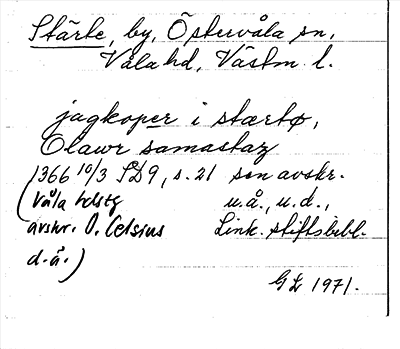 Stärte, by, Östervåla sn,
Våla hd, Västm. l.
jagkoper i stærtø,
Olawr samastaz
1366 10/3 SD9, s. 21 sen avskr.
(Våla hdstg u.å., u.d.,
avskr. O. Celsius Link. stiftsbibl.
d.ä.)
GL 1971.